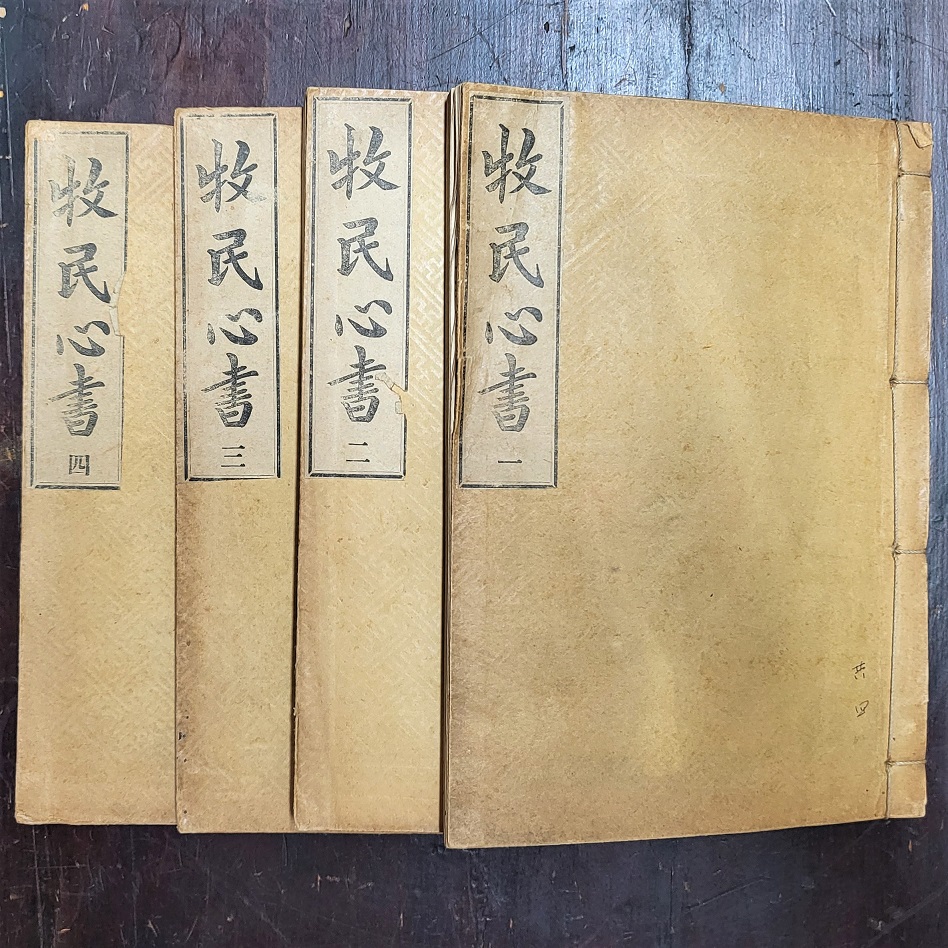 牧民心書 一
共四
牧民心書 二
牧民心書 三
牧民心書 四